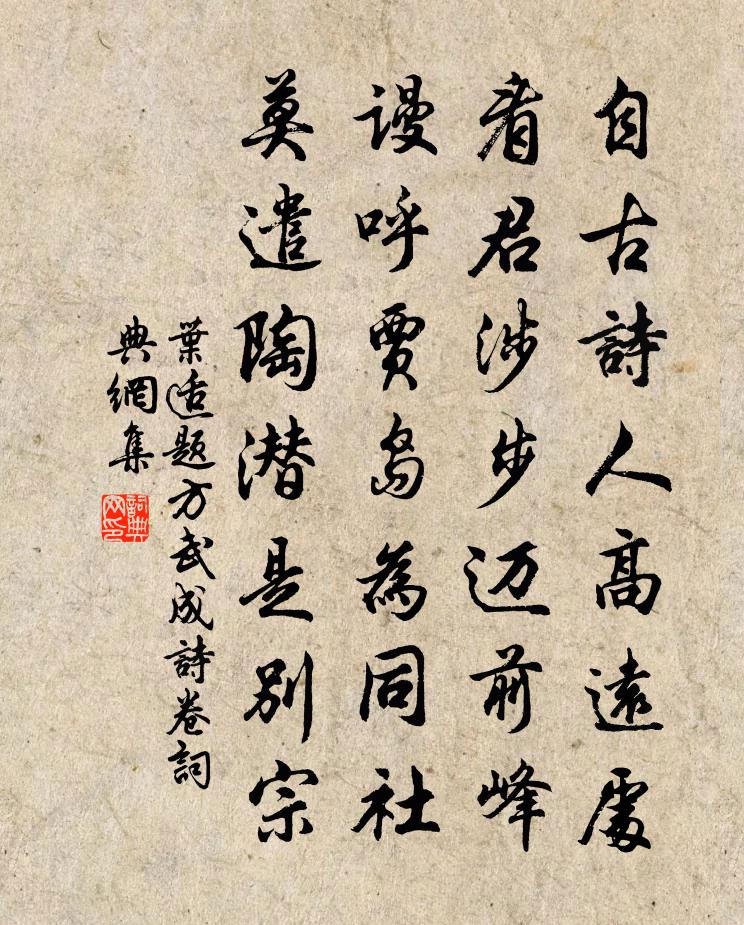 自古詩人高遠處
看君涉步迈前峰
謾呼賈島為同社
莫遣陶潜是别宗
葉适題方武成詩卷詞
典網集
詞典
网印